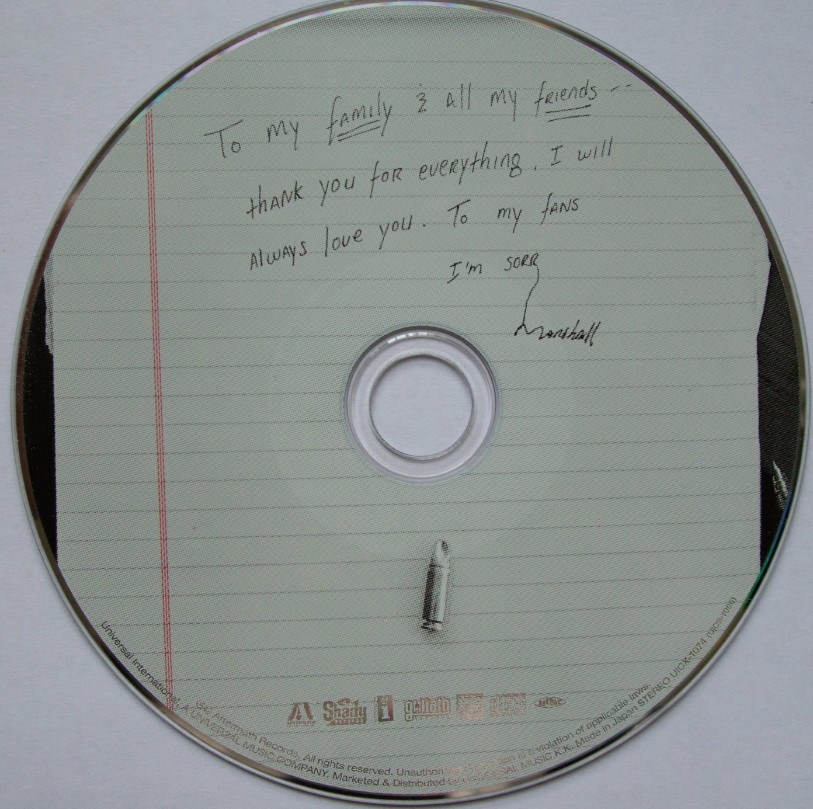 To my family & All my friends --
thank you for everything. I will
Always love you. To my fans
I'm sorr
Marshall
Shady
RECORDS
goliath
Universal International
Aftermath Records. All rights reserved. is a violation of applicable laws.
A UNIVERSAL MUSIC COMPANY. Marketed & Distributed by UNIVERSAL MUSIC K.K. Made in Japan STEREO UICX-1074